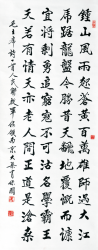 鍾山風雨起蒼黃百萬雄師過大江
虎踞龍盤今勝昔天翻地覆慨而慷
宜將剩勇追窮寇不可沽名學霸王
天若有情天亦老人間正道是滄桑
毛主席詩一首人民解放軍占領南京